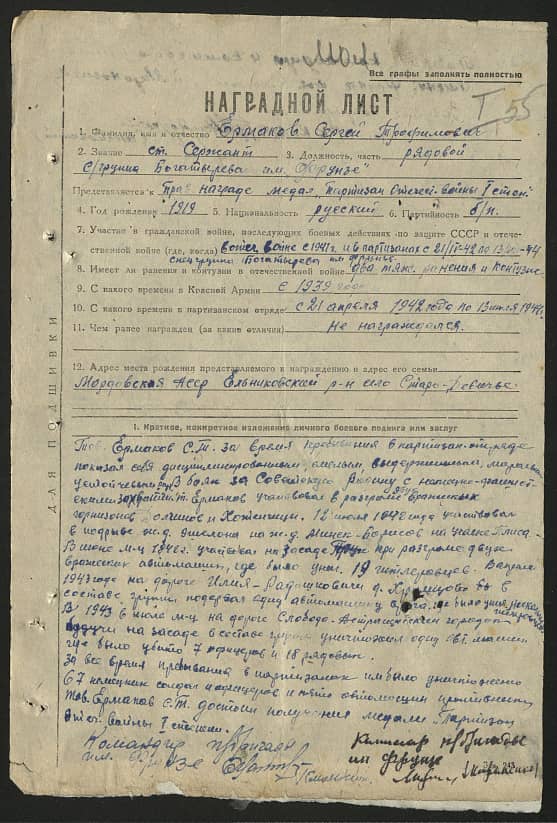 Все графы заполнять полностью
НАГРАДНОЙ ЛИСТ
I 55
1. Фамилия, имя и отчество Ермаков Сергей Трофимович
2. Звание ст. Сержант 3. Должность, часть рядовой
с/группа Богатырева им. Фрунзе"
Представляется к Прав награде медал. Партизан Отечеств. войны I степ"
4. Год рождения 1919 5. Национальность русский 6. Партийность б/п.
7. Участие в гражданской войне, последующих боевых действиях по защите СССР и отече-
ственной войне (где, когда) войне с 1941 г. и в партизанах с 21/IV-42 по 13/ -44
спецгруппа Богатырева им Фрунзе
8. Имеет ли ранения и контузии в отечественной войне два тяж. ранения и контузию
9. С какого времени в Красной Армии с 1939 года
10. С какого времени в партизанском отряде с 21 апреля 1942 года по 13 июля 1944г.
11. Чем ранее награжден (за какие отличия) Не награждался.
12. Адрес места рождения представляемого к награждению и адрес его семьи
Мордовская Асср Ельниковский р-н село Старо-Девичье
ДЛЯ ПОДШИВКИ
I. Краткое, конкретное изложение личного боевого подвига или заслуг
Тов. Ермаков С.Т. за время пребывания в партизан. отряде
показал себя дисциплинированным, смелым, выдержанным, морально
устойчивым. В боях за Советскую Родину с немецко-фашист-
скими захватчик. т. Ермаков участвовал в разгроме вражеских
гарнизонов Долгинов и Хотенчицы. 12 июля 1942 года участвовал
в подрыве ж.д. эшелона на ж.д. Минск-Борисов на участке
В июне м-ц 1942г. участвовал на засаде при разгроме двух
вражеских автомашин, где было уничт. 19 гитлеровцев. В
1943 года на дороге Илия-Радошковичи д. в
составе группы, подорвал одну автомашину врага, где было уничт.
В 1943 в июле м-ц на дороге Слобода- городок
будучи на засаде в составе группы уничтожил одну авт. машин
где было убито 7 офицеров и 18 рядовых.
За все время пребывания в партизанах им было уничтожено
67 немецких солдат и офицеров и автомашин противника
Тов. Ермаков С.Т. достоин получения медали Партизан
Отеч. войны I степени.
Командир п/бригады
им. Фрунзе
Комиссар п/бригады
им Фрунзе